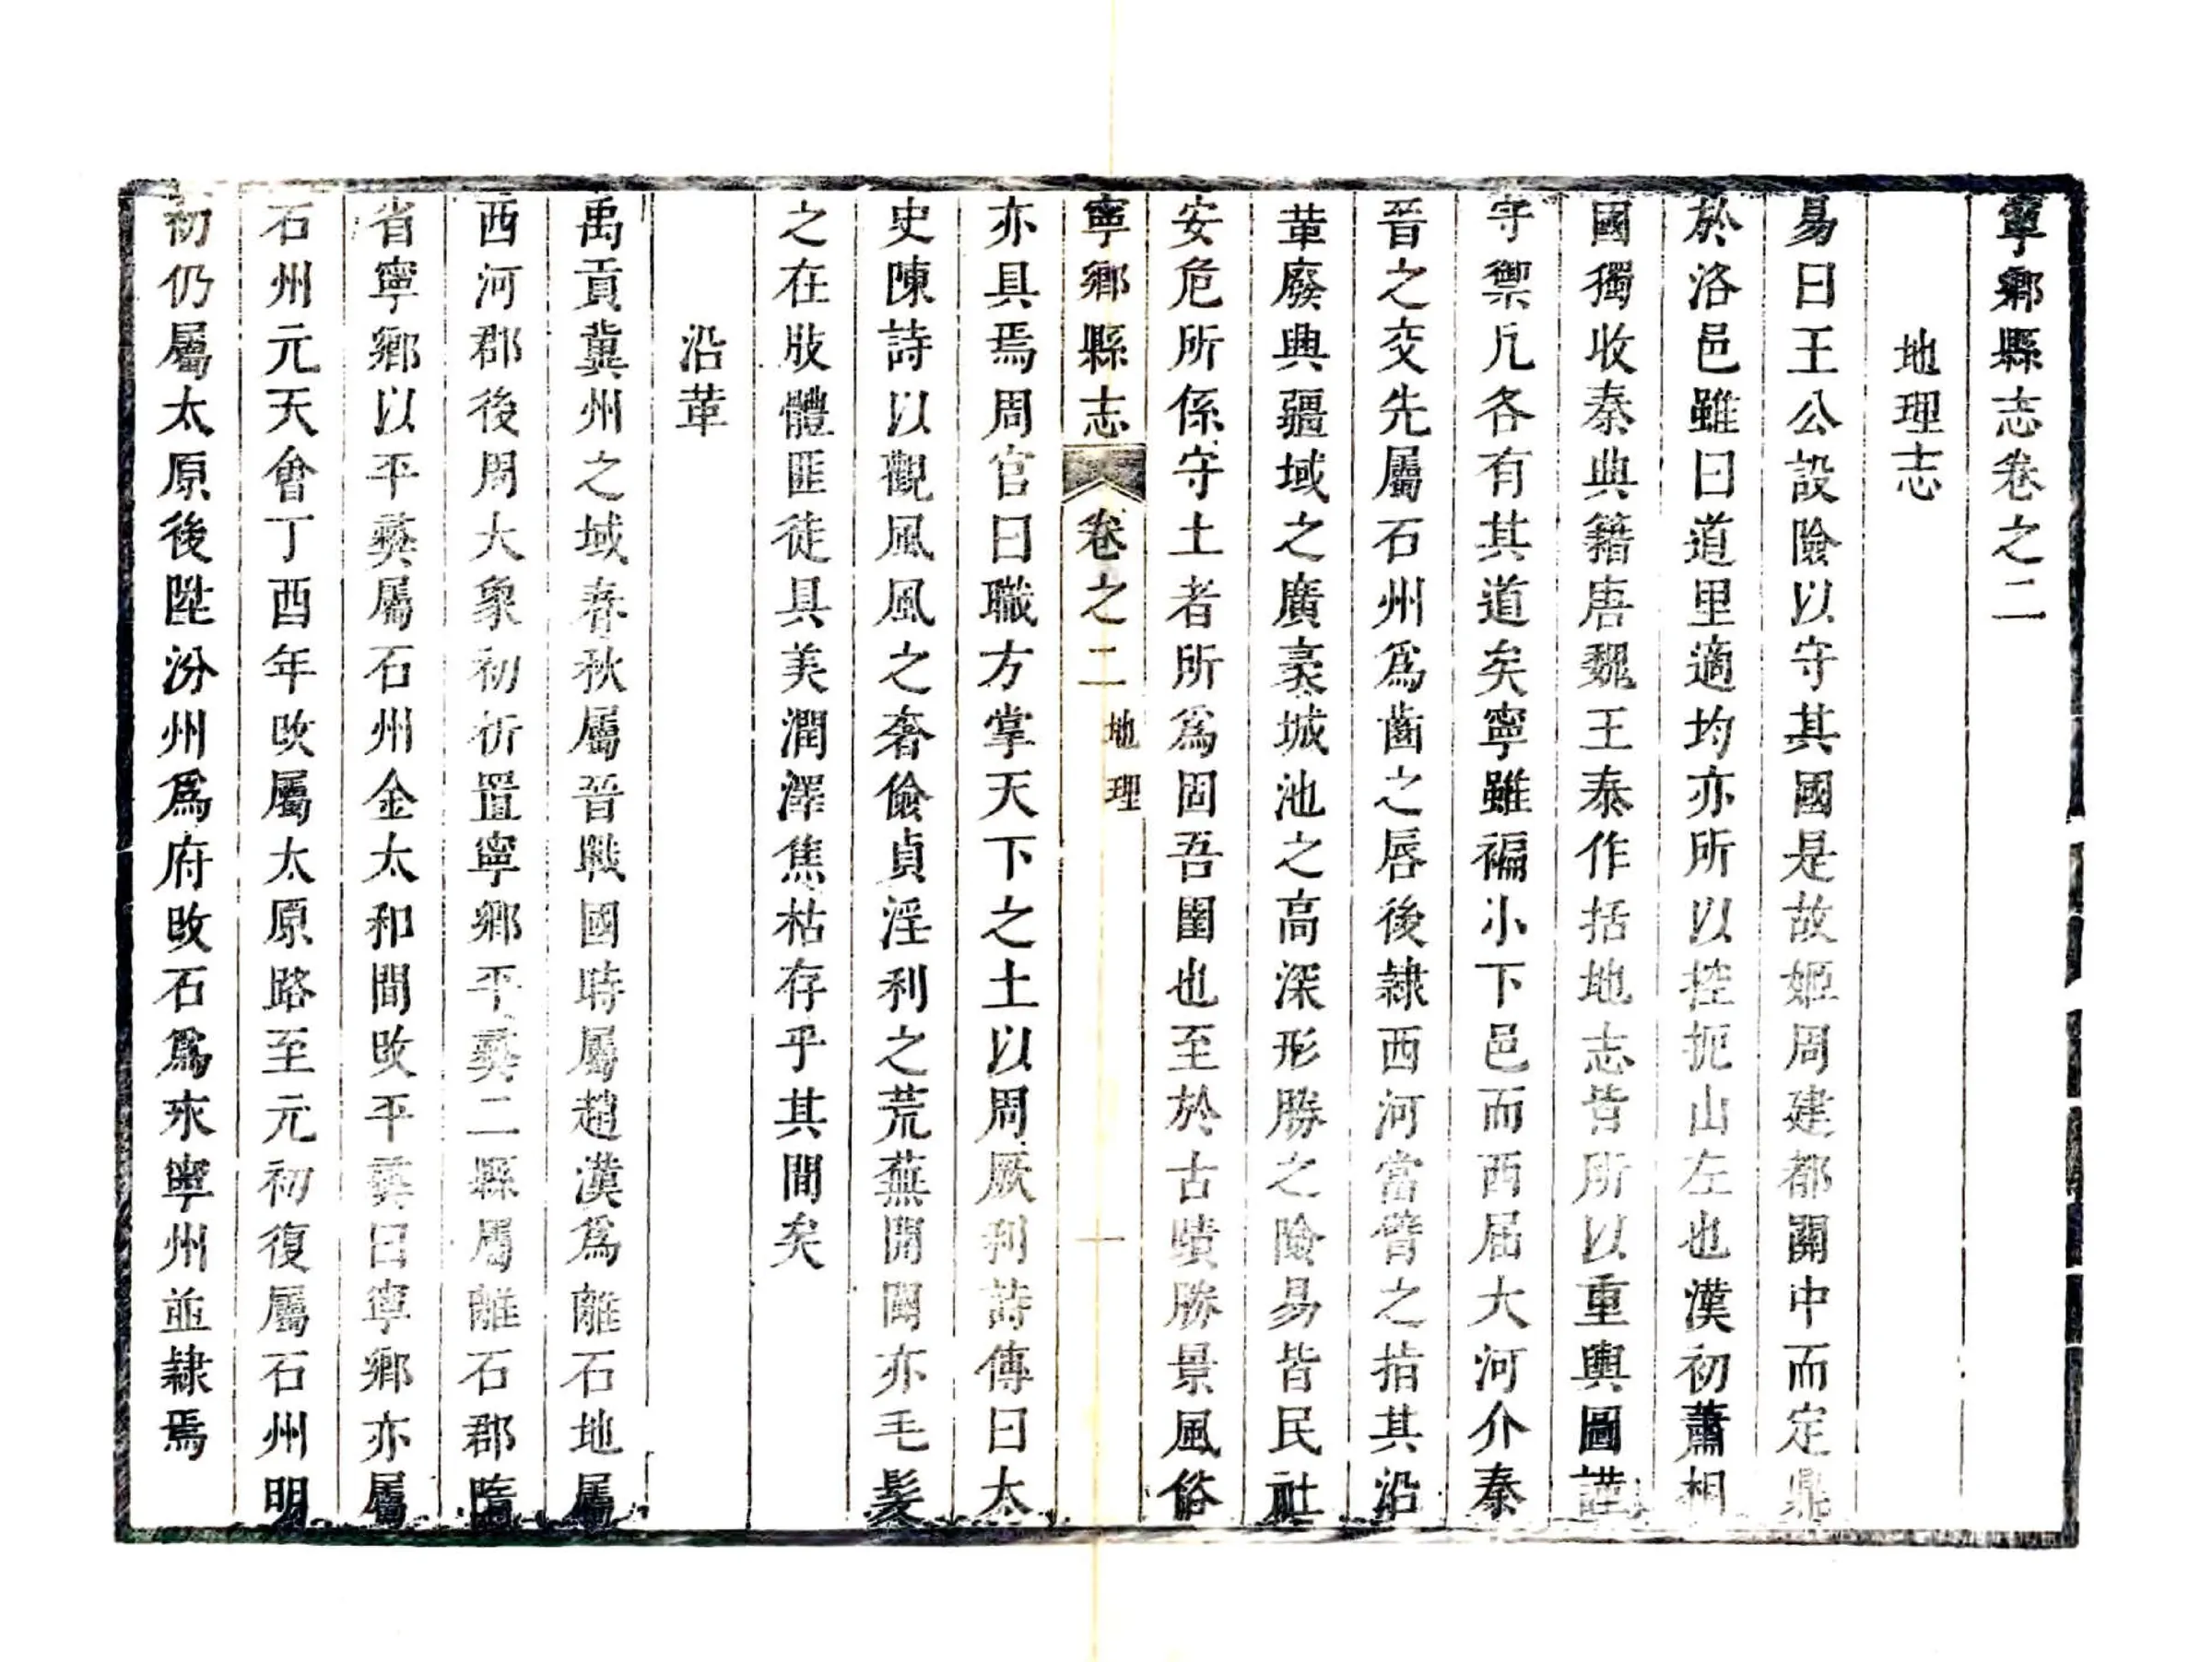 寧鄉縣志卷之二
地理志
易曰王公設險以守其國是故姬周建都關中而定鼎
於洛邑雖曰道里適均亦所以控扼山左也漢初蕭相
國獨收秦典籍唐魏王泰作括地志皆所以重輿圖謹
守禦凡各有其道矣寧雖褊小下邑而西屆大河介秦
晉之交先屬石州為齒之唇後隸西河當臂之指其沿
革廢興疆域之廣袤城池之高深形勝之險易皆民社
安危所係守土者所為固吾圉也至於古蹟勝景風俗
寧鄉縣志 卷之二 地理 一
亦具焉周官曰職方掌天下之土以周厥利詩傳曰太
史陳詩以觀風風之奢儉貞淫利之荒蕪開闢亦毛髮
之在肢體匪徒具美潤澤焦枯存乎其間矣
沿革
禹貢冀州之域春秋屬晉戰國時屬趙漢為離石地屬
西河郡後周大象初析置寧鄉平彝二縣屬離石郡隋
省寧鄉以平彝屬石州金太和間改平彝曰寧鄉亦屬
石州元天會丁酉年改屬太原路至元初復屬石州明
初仍屬太原後陞汾州為府改石為永寧州並隸焉